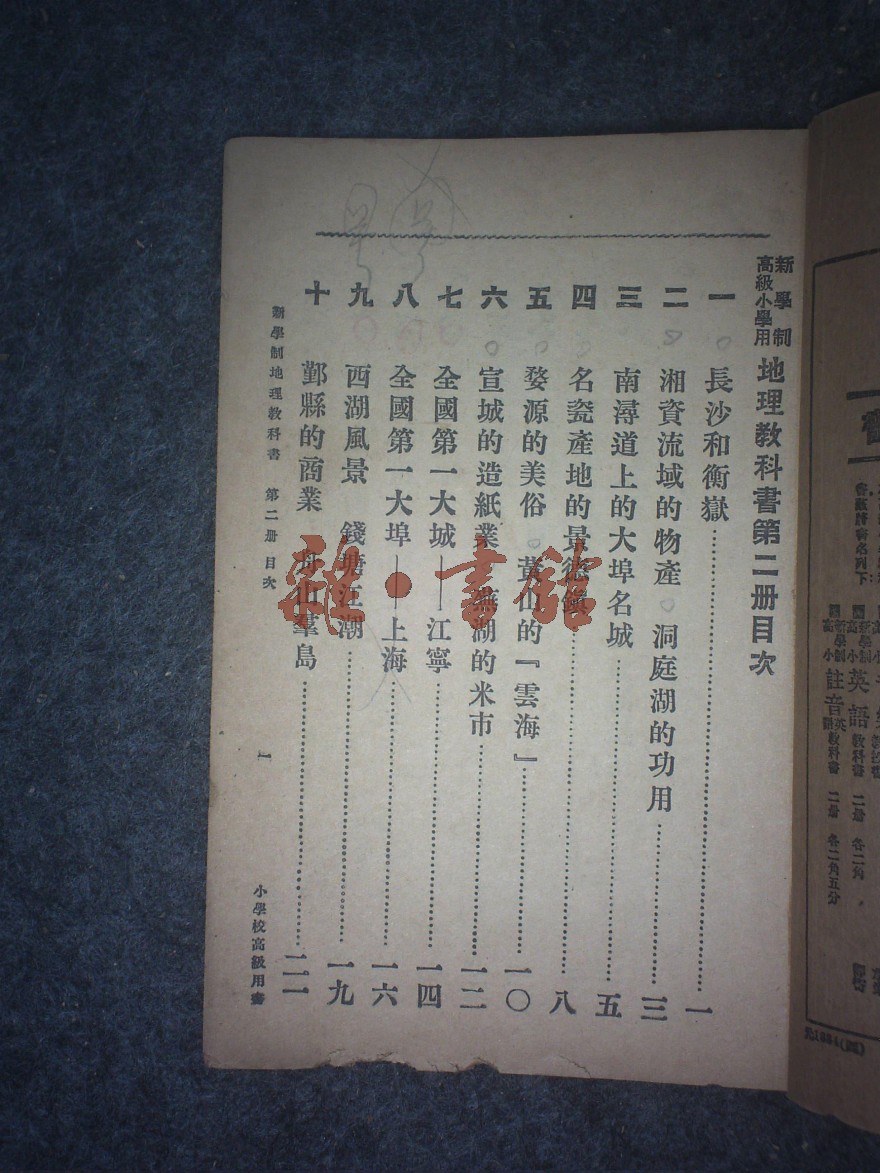 新學制
高級小學用
地理教科書第二册目次
一 長沙和衡嶽 一
二 湘資流域的物產 洞庭湖的功用 三
三 南潯道上的大埠名城 五
四 名瓷產地的景德鎭 八
五 婺源的美俗 黃山的『雲海』 一〇
六 宣城的造紙業 蕪湖的米市 一二
七 全國第一大城——江寧 一四
八 全國第一大埠——上海 一六
九 西湖風景 錢塘江潮 一九
十 鄞縣的商業 舟山羣島
新學制地理教科書 第二册 目次
一
小學校高級用書
雜·書館
英語教科書 二册 各二角
註音 教科書 二册 各二角五分